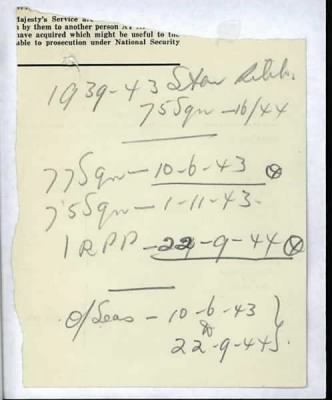 Majesty's Service are
n by them to another person
have acquired which might be useful to the
able to prosecution under National Security
1939-43 Star
75 Sqn - 16/44
77 Sqn - 10-6-43
75 Sqn - 1-11-43.
1 RPP - 22-9-44
O/Seas - 10-6-43
22-9-44